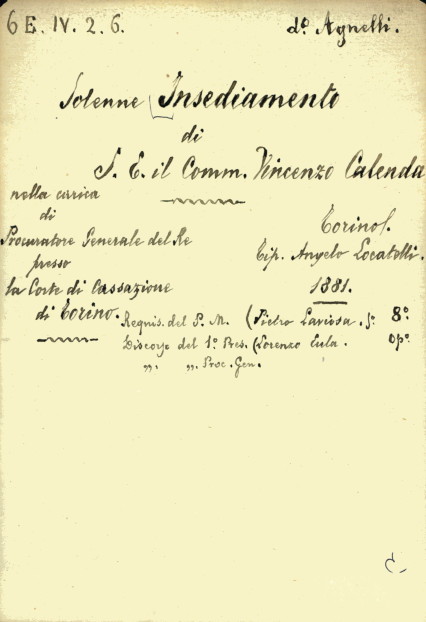 6 E. IV. 2. 6.
d.º Agnelli.
Solenne Insediamento
di
S. E. il Comm. Vincenzo Calenda
nella carica
di
Procuratore Generale del Re
presso
la Corte di Cassazione
di Torino.
Torino.
Tip. Angelo Locatelli.
1881.
Requis. del P. M. (Pietro Laviosa.
8º
Discorso del 1º Pres. (Lorenzo Eula.
opº
„ „ Proc. Gen.
C.